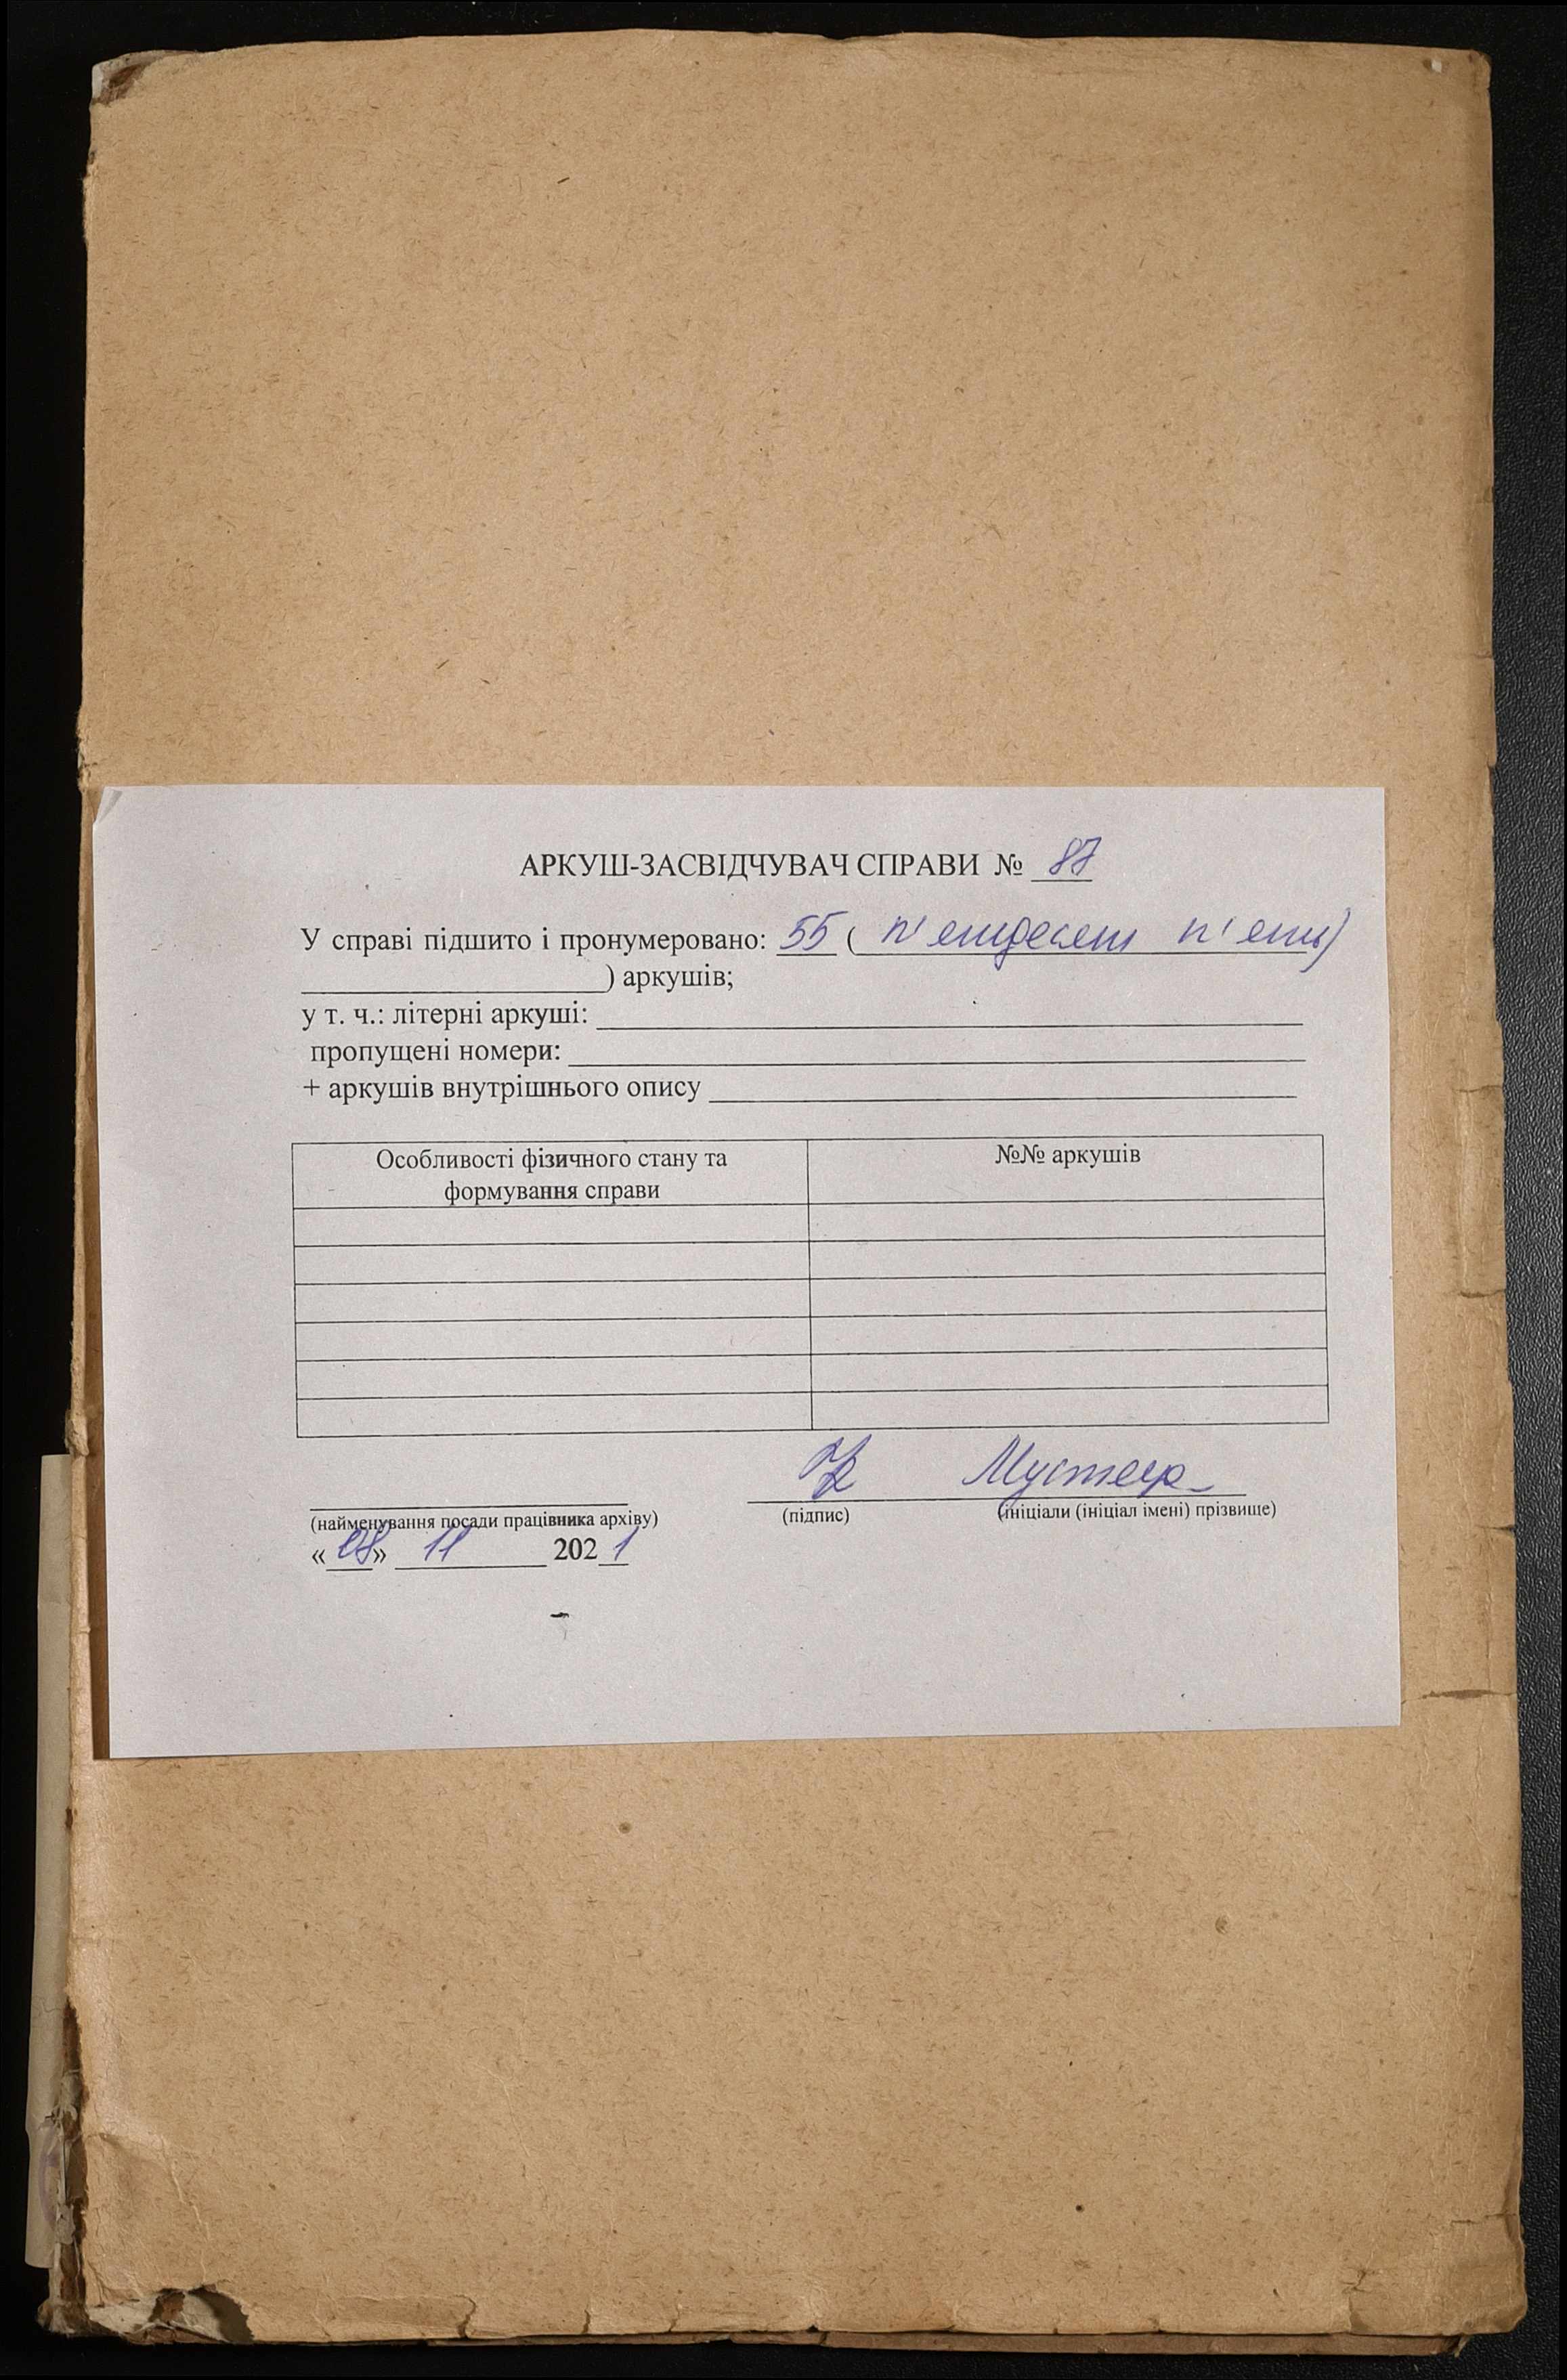 АРКУШ-ЗАСВІДЧУВАЧ СПРАВИ № 87
У справі підшито і пронумеровано: 55 ( п'ятдесят п'ять)
) аркушів;
у т. ч.: літерні аркуші:
пропущені номери:
+ аркушів внутрішнього опису
Особливості фізичного стану та
формування справи
№№ аркушів
(найменування посади працівника архіву)
(підпис)
(ініціали (ініціал імені) прізвище)
« » 11 2021